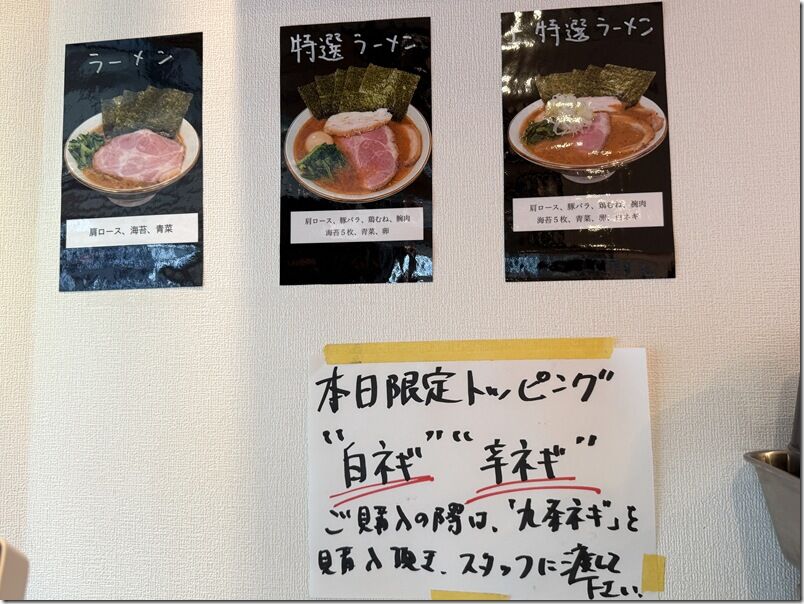 ラーメン
肩ロース、海苔、青菜
特選ラーメン
肩ロース、豚バラ、鶏むね、腕肉
海苔5枚、青菜、卵
上特選ラーメン
肩ロース、豚バラ、鶏むね、腕肉
海苔5枚、青菜、卵、白ネギ
本日限定トッピング
“白ネギ” “辛ネギ”
ご購入の際は、「九条ネギ」を
購入頂き、スタッフに渡して
下さい。